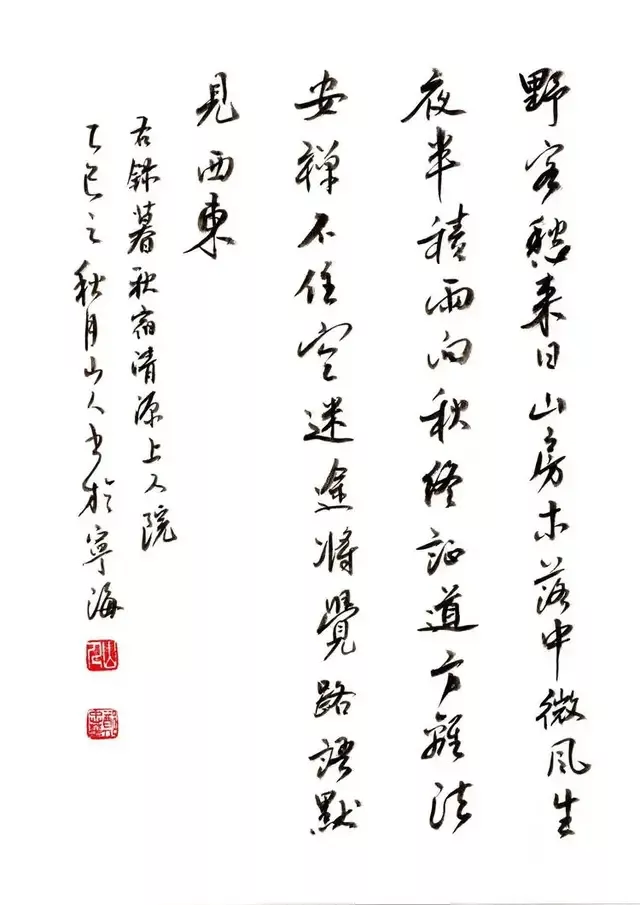 野客愁来日山房木落中微風生
夜半積雨向秋終証道方離法
安禪不住空迷途將覺路語默
見西東
右錄暮秋宿清源上人院
乙巳之秋月山人書於寧海